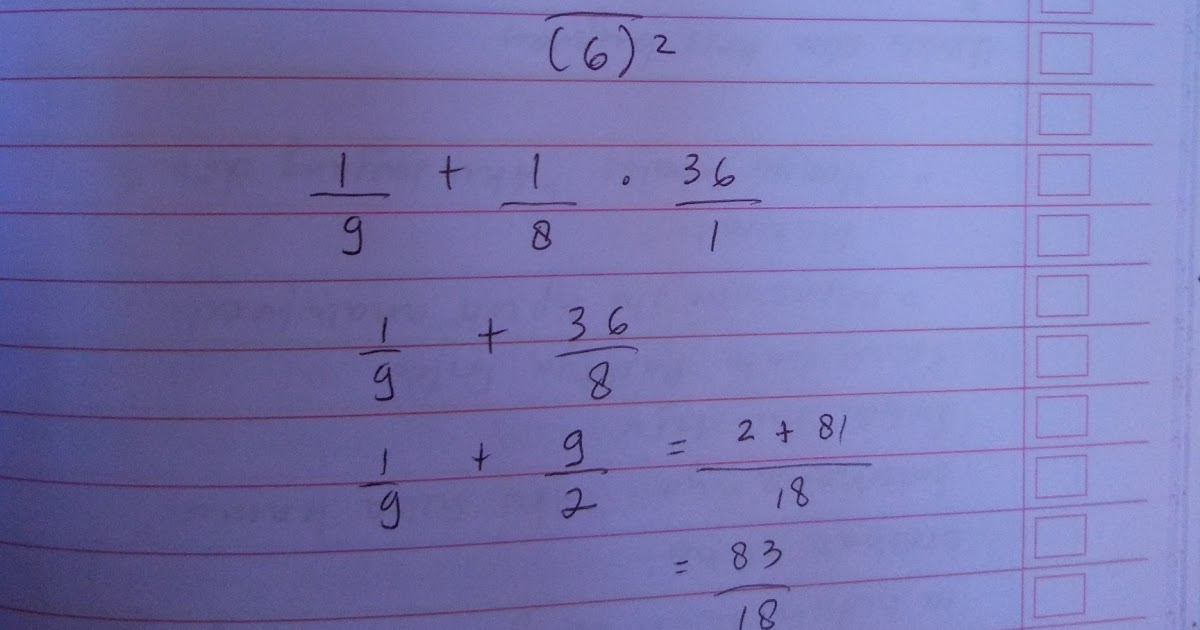 (6)²
1/9 + 1/8 . 36/1
1/9 + 36/8
1/9 + 9/2 = 2 + 81/18
= 83/18